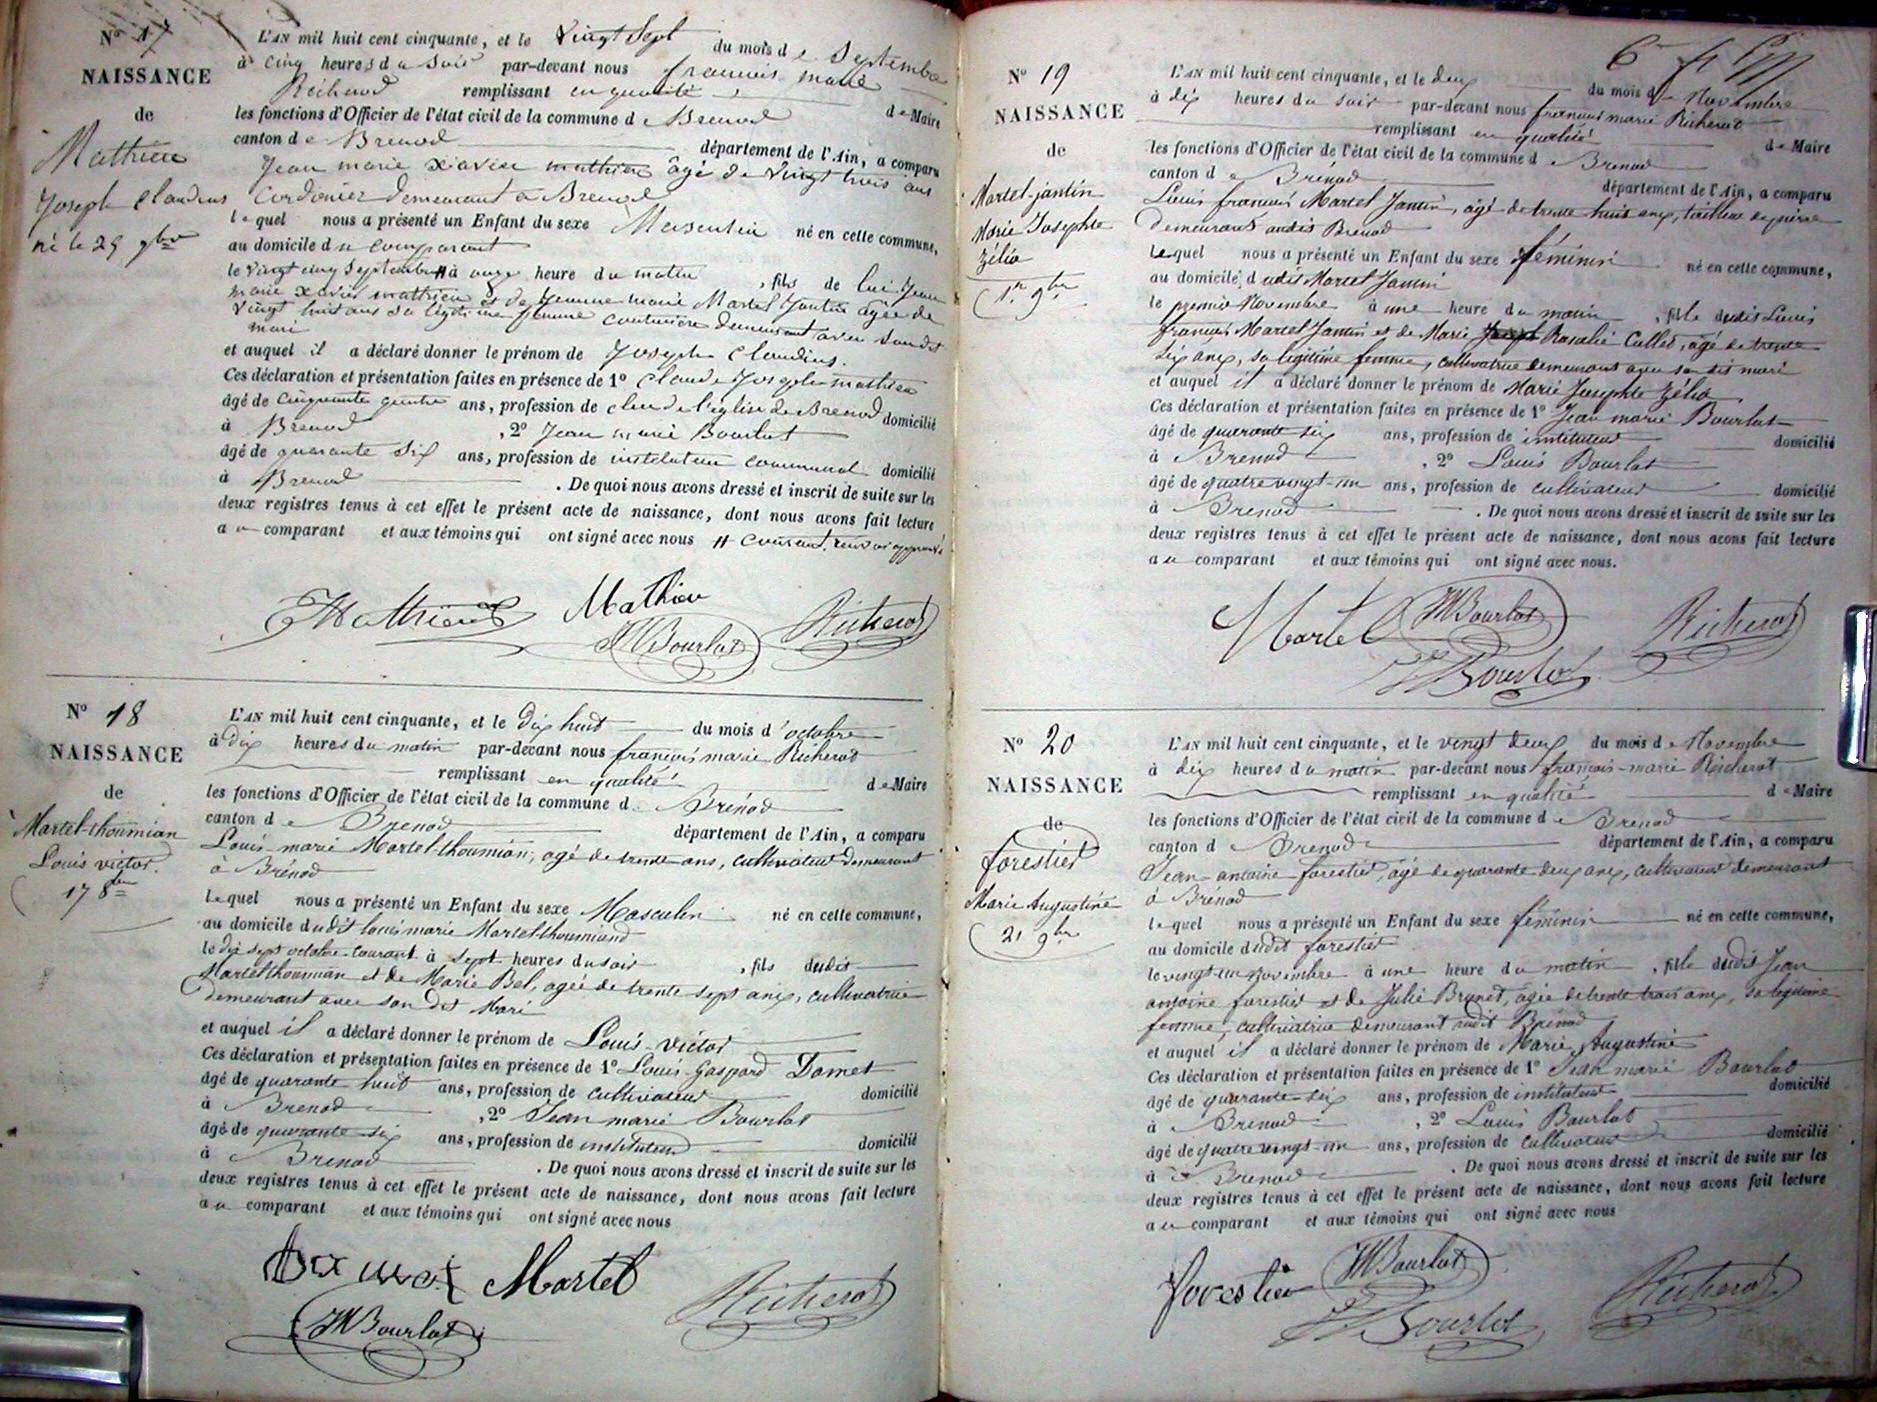 N° 17
NAISSANCE
de
Mathieu
Joseph Claudius
né le 25 7bre
L'AN mil huit cent cinquante, et le vingt Sept du mois de Septembre
à cinq heures du soir par-devant nous françois marie
Richerod remplissant en qualité de Maire
les fonctions d'Officier de l'état civil de la commune de Brenod
canton de Brenod département de l'Ain, a comparu
Jean marie Xavier mathieu âgé de vingt trois ans
Cordonier demeurant à Brenod
lequel nous a présenté un Enfant du sexe Masculin né en cette commune,
au domicile du comparant
le vingt cinq Septembre # à onze heure du matin, fils de lui Jean
marie Xavier mathieu et de Jeanne marie Martel Jantin âgée de
vingt huit ans sa légitime femme couturière demeurant avec son dit
mari
et auquel il a déclaré donner le prénom de Joseph Claudius.
Ces déclaration et présentation faites en présence de 1° Claude Joseph mathieu
âgé de cinquante quatre ans, profession de clerc de l'église de Brenod domicilié
à Brenod, 2° Jean marie Bourlot
âgé de quarante six ans, profession de instituteur communal domicilié
à Brenod. De quoi nous avons dressé et inscrit de suite sur les
deux registres tenus à cet effet le présent acte de naissance, dont nous avons fait lecture
au comparant et aux témoins qui ont signé avec nous # courant, renvoi approuvé
Mathieu Mathieu
JM Bourlot Richerod
N° 18
NAISSANCE
de
Martel-thoumian
Louis victor.
17 8bre
L'AN mil huit cent cinquante, et le dix huit du mois d'octobre
à dix heures du matin par-devant nous françois marie Richerod
remplissant en qualité de Maire
les fonctions d'Officier de l'état civil de la commune de Brénod
canton de Brenod département de l'Ain, a comparu
Louis-marie Martel-thoumian, agé de trente ans, cultivateur demeurant
à Brénod
lequel nous a présenté un Enfant du sexe Masculin né en cette commune,
au domicile dudit louis marie Martelthoumiand
le dix sept octobre courant à sept heures du soir, fils dudit
Martelthoumian et de Marie Bel, agée de trente sept ans, cultivatrice
demeurant avec son dit Mari
et auquel il a déclaré donner le prénom de Louis-victor
Ces déclaration et présentation faites en présence de 1° Louis-Gaspard Domet
âgé de quarante huit ans, profession de cultivateur domicilié
à Brenod, 2° Jean marie Bourlot
âgé de quarante six ans, profession de instituteur domicilié
à Brenod. De quoi nous avons dressé et inscrit de suite sur les
deux registres tenus à cet effet le présent acte de naissance, dont nous avons fait lecture
au comparant et aux témoins qui ont signé avec nous
Martel
JM Bourlot Richerod
N° 19
NAISSANCE
de
Martel-jantin
Marie Josephte
Zélia
1er 9bre
L'AN mil huit cent cinquante, et le deux du mois de Novembre
à dix heures du soir par-devant nous françois marie Richerod
remplissant en qualité de Maire
les fonctions d'Officier de l'état civil de la commune de Brenod
canton de Brénod département de l'Ain, a comparu
Louis françois Martel Jantin, âgé de trente huit ans, tailleur de pierre
demeurant audit Brenod
lequel nous a présenté un Enfant du sexe féminin né en cette commune,
au domicile dudit Martel Jantin
le premier Novembre à une heure du matin, fille dudit Louis
françois Martel Jantin et de Marie Rosalie Collet, âgé de trente
six ans, sa légitime femme, cultivatrice demeurant avec son dit mari
et auquel il a déclaré donner le prénom de Marie Josephte Zélia
Ces déclaration et présentation faites en présence de 1° Jean marie Bourlot
âgé de quarante six ans, profession de instituteur domicilié
à Brenod, 2° Louis Bourlot
âgé de quatre vingt-un ans, profession de cultivateur domicilié
à Brenod. De quoi nous avons dressé et inscrit de suite sur les
deux registres tenus à cet effet le présent acte de naissance, dont nous avons fait lecture
au comparant et aux témoins qui ont signé avec nous.
Martel JM Bourlot Richerod
Bourlot
N° 20
NAISSANCE
de
forestier
Marie Augustine
21 9bre
L'AN mil huit cent cinquante, et le vingt deux du mois de Novembre
à dix heures du matin par-devant nous françois-marie Richerot
remplissant en qualité de Maire
les fonctions d'Officier de l'état civil de la commune de Brenod
canton de Brenod département de l'Ain, a comparu
Jean antoine forestier, âgé de quarante deux ans, cultivateur demeurant
à Brénod
lequel nous a présenté un Enfant du sexe féminin né en cette commune,
au domicile dudit forestier
le vingt un novembre à une heure du matin, fille dudit Jean
antoine forestier et de Julie Brunet, âgée de trente trois ans, sa légitime
femme, cultivatrice demeurant audit Brénod
et auquel il a déclaré donner le prénom de Marie Augustine
Ces déclaration et présentation faites en présence de 1° Jean marie Bourlot
âgé de quarante-six ans, profession de instituteur domicilié
à Brenod, 2° Louis Bourlot
âgé de quatre vingt-un ans, profession de cultivateur domicilié
à Brenod. De quoi nous avons dressé et inscrit de suite sur les
deux registres tenus à cet effet le présent acte de naissance, dont nous avons fait lecture
au comparant et aux témoins qui ont signé avec nous
forestier JM Bourlot Richerod
Bourlot